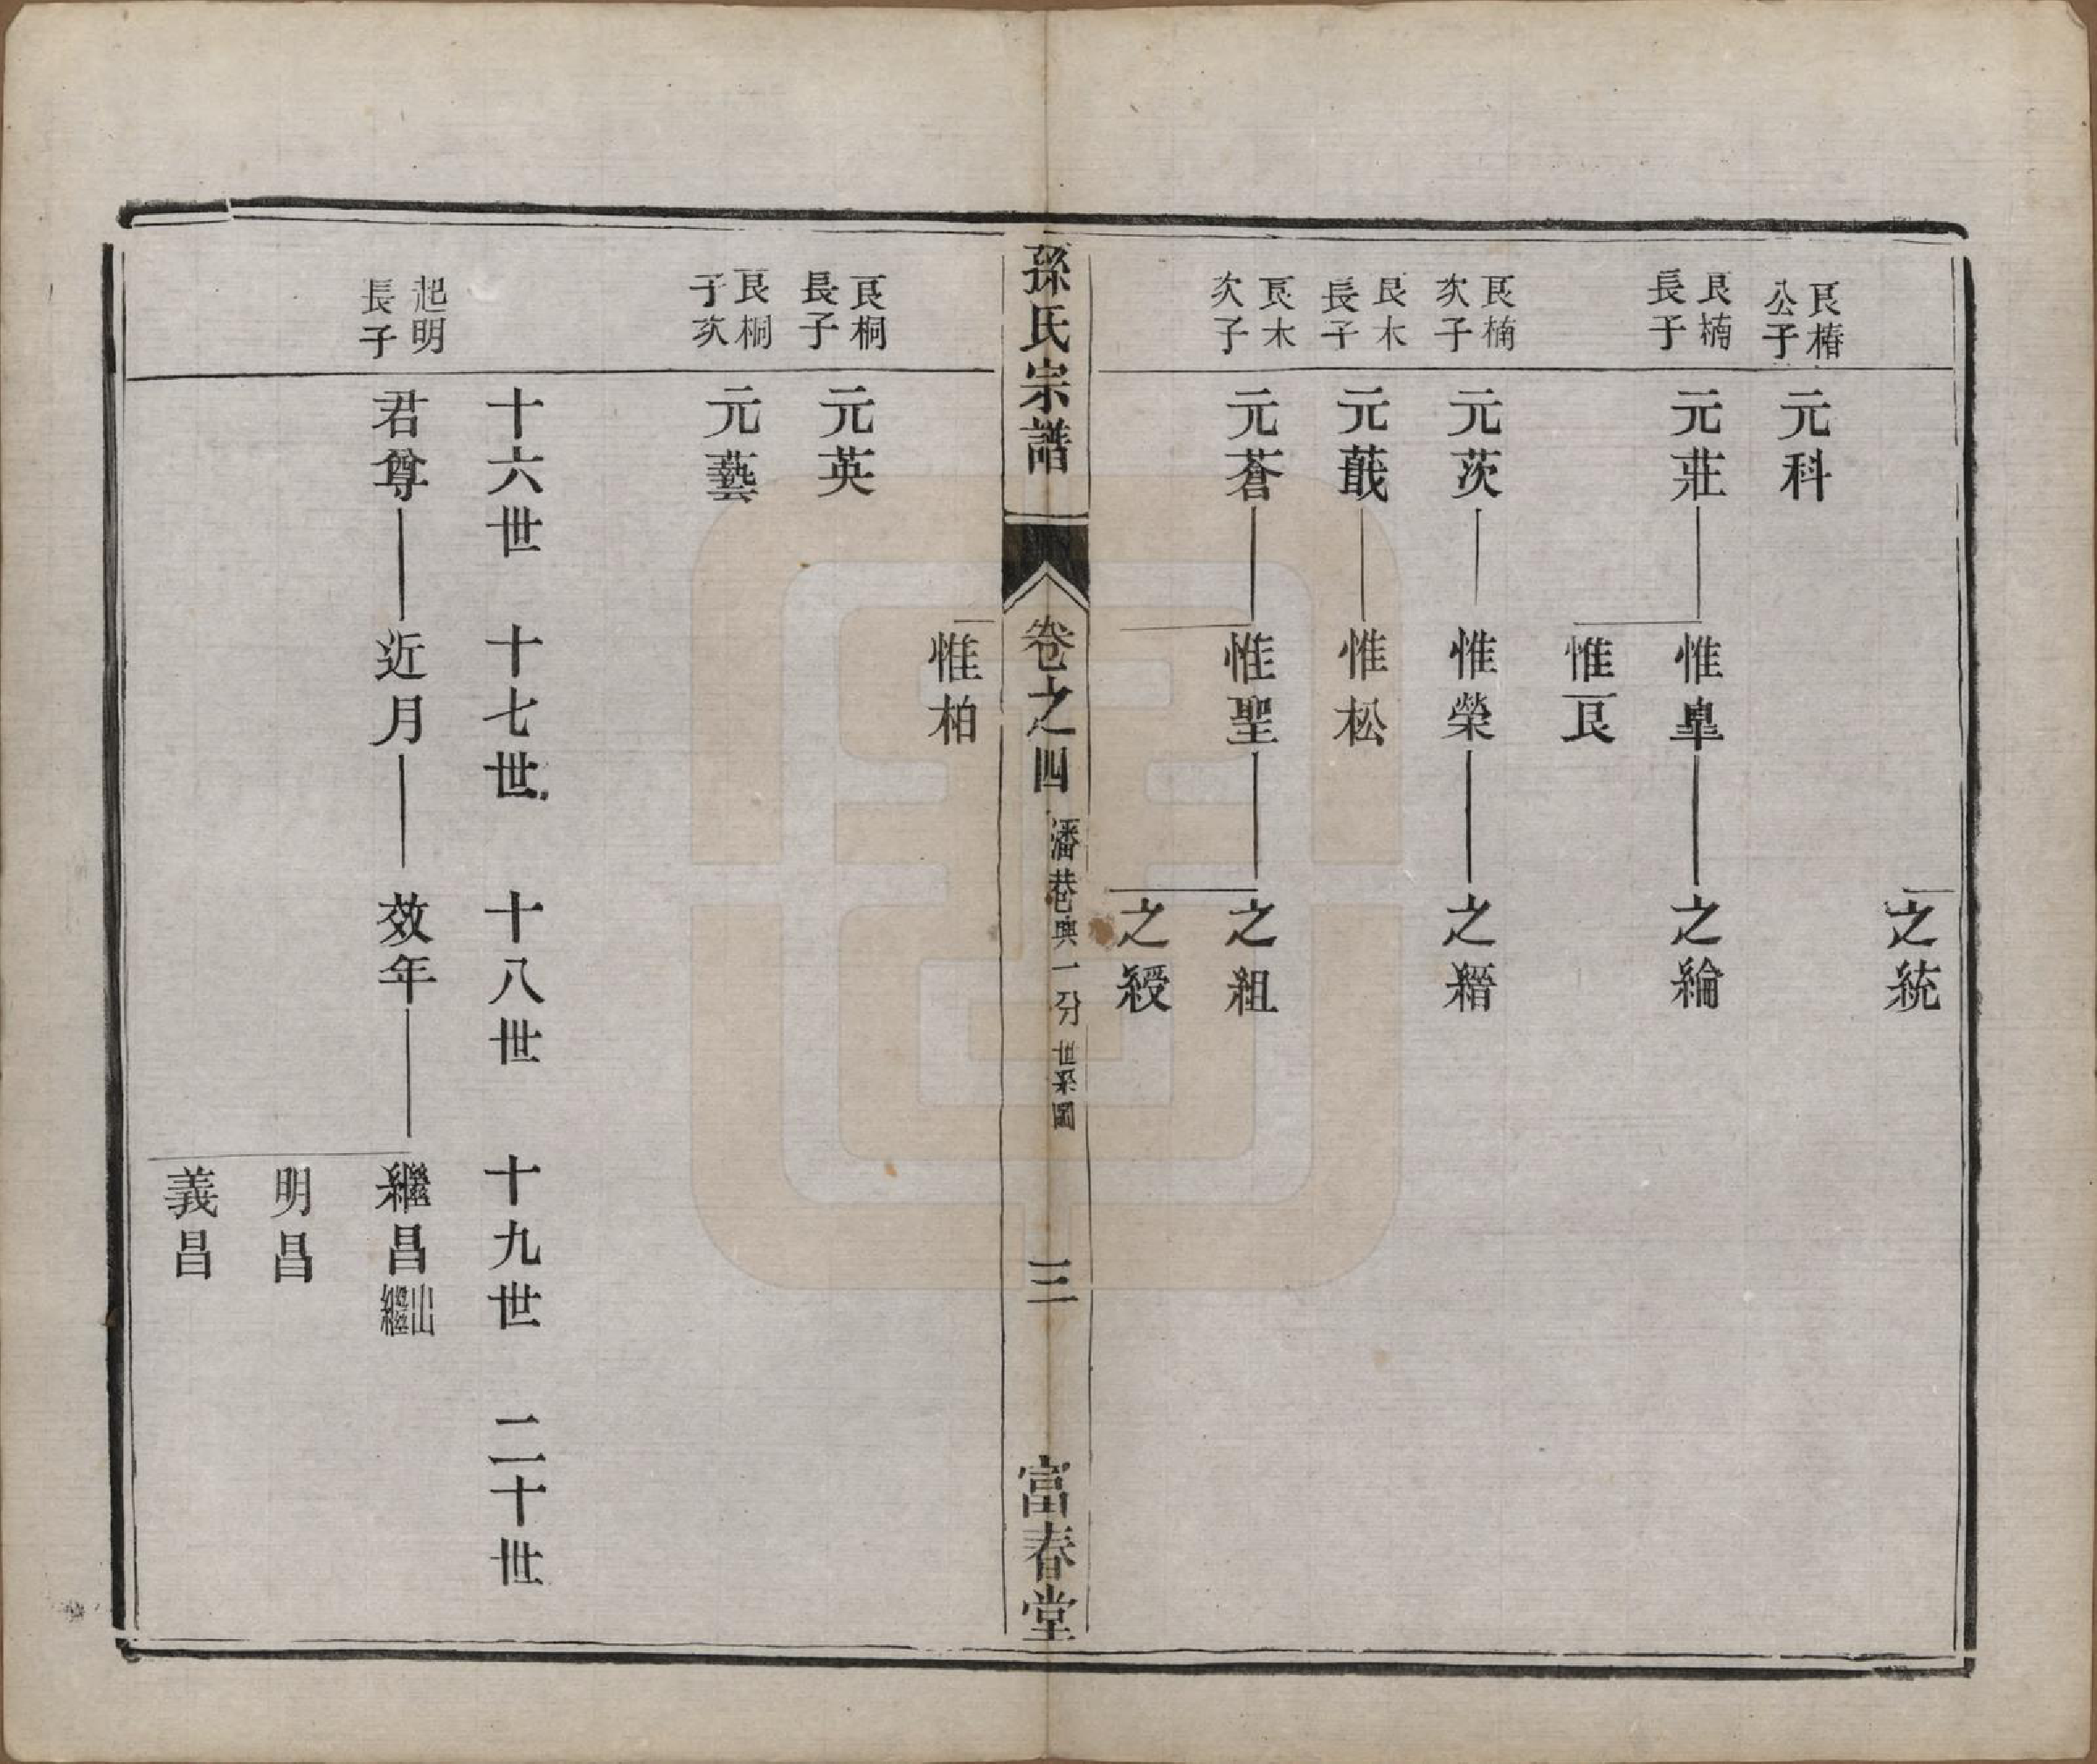 之統
艮椿公子
元科
艮楠長子
元莊
惟皐
之綸
惟艮
艮楠次子
元茨
惟榮
之縉
艮木長子
元蕺
惟松
艮木次子
元蒼
惟聖
之組
之綬
孫氏宗譜
卷之四
潘巷興一分世系圖
三
富春堂
惟柏
艮桐長子
元英
艮桐次子
元藝
十六世
十七世
十八世
十九世
二十世
起明長子
君尊
近月
效年
繼昌
繼山
明昌
義昌